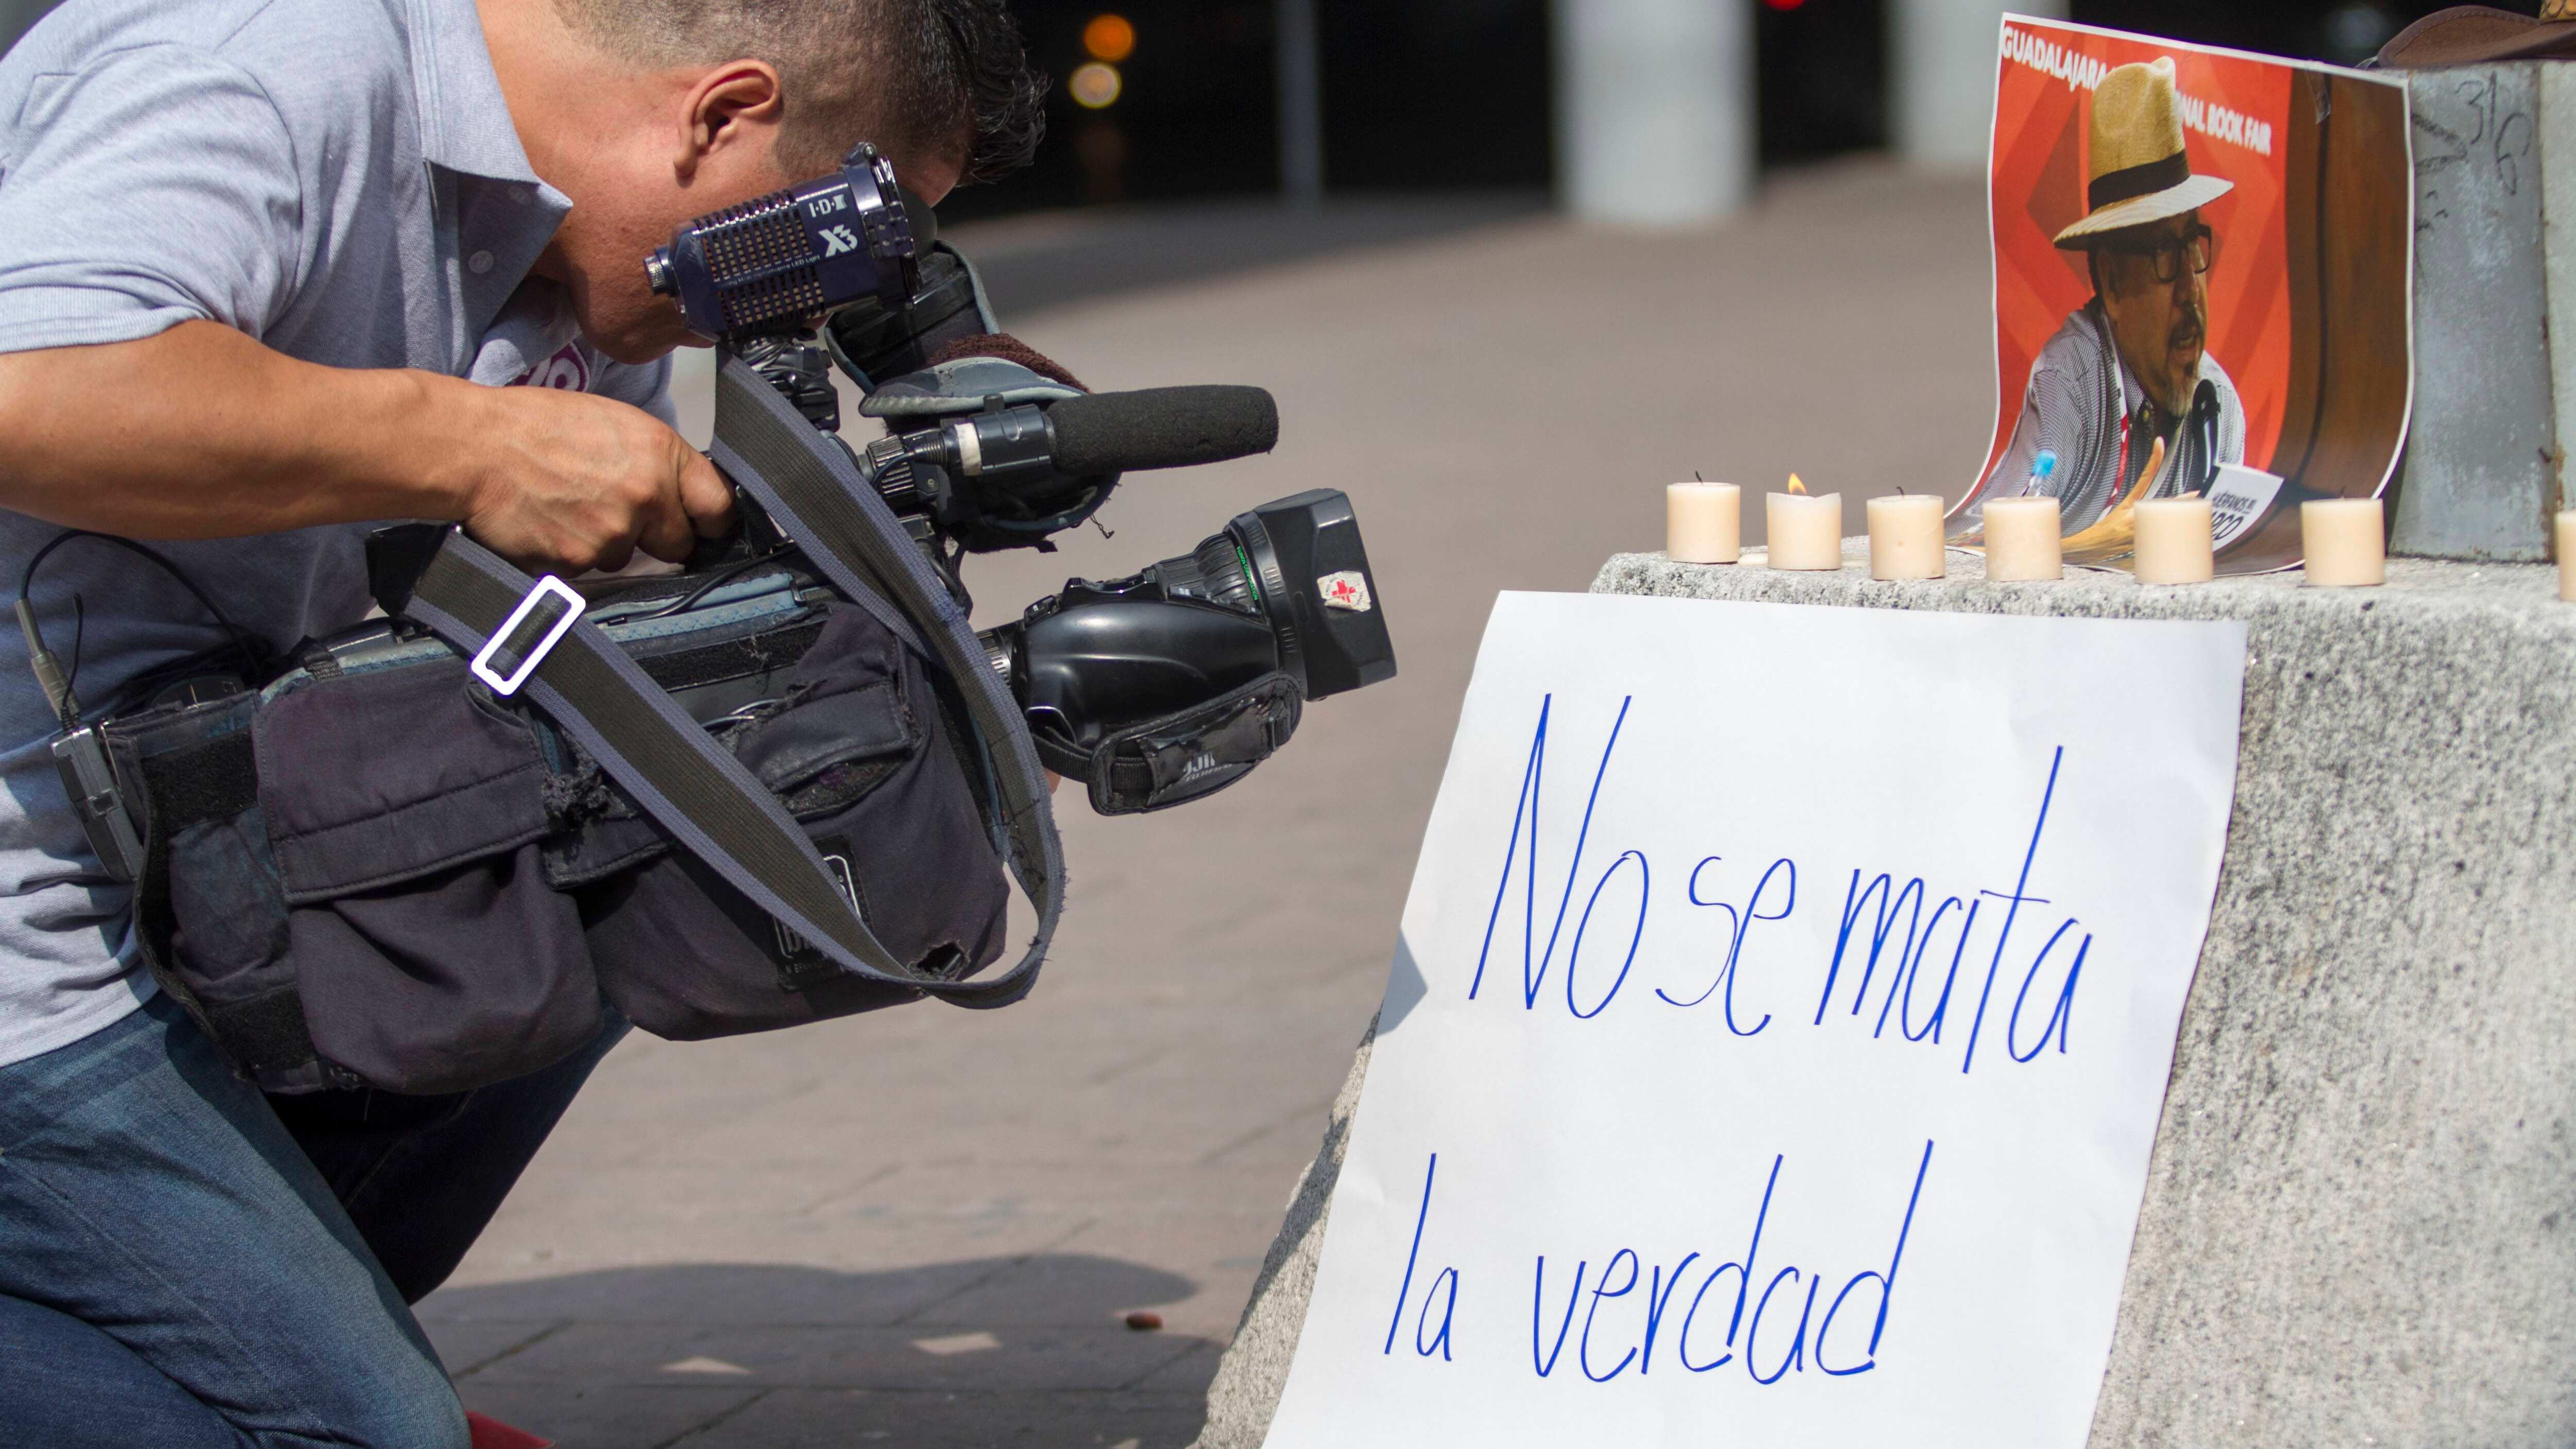 GUADALAJARA
NAL BOOK FAIR
I·D·X
X3
No se mata
la verdad